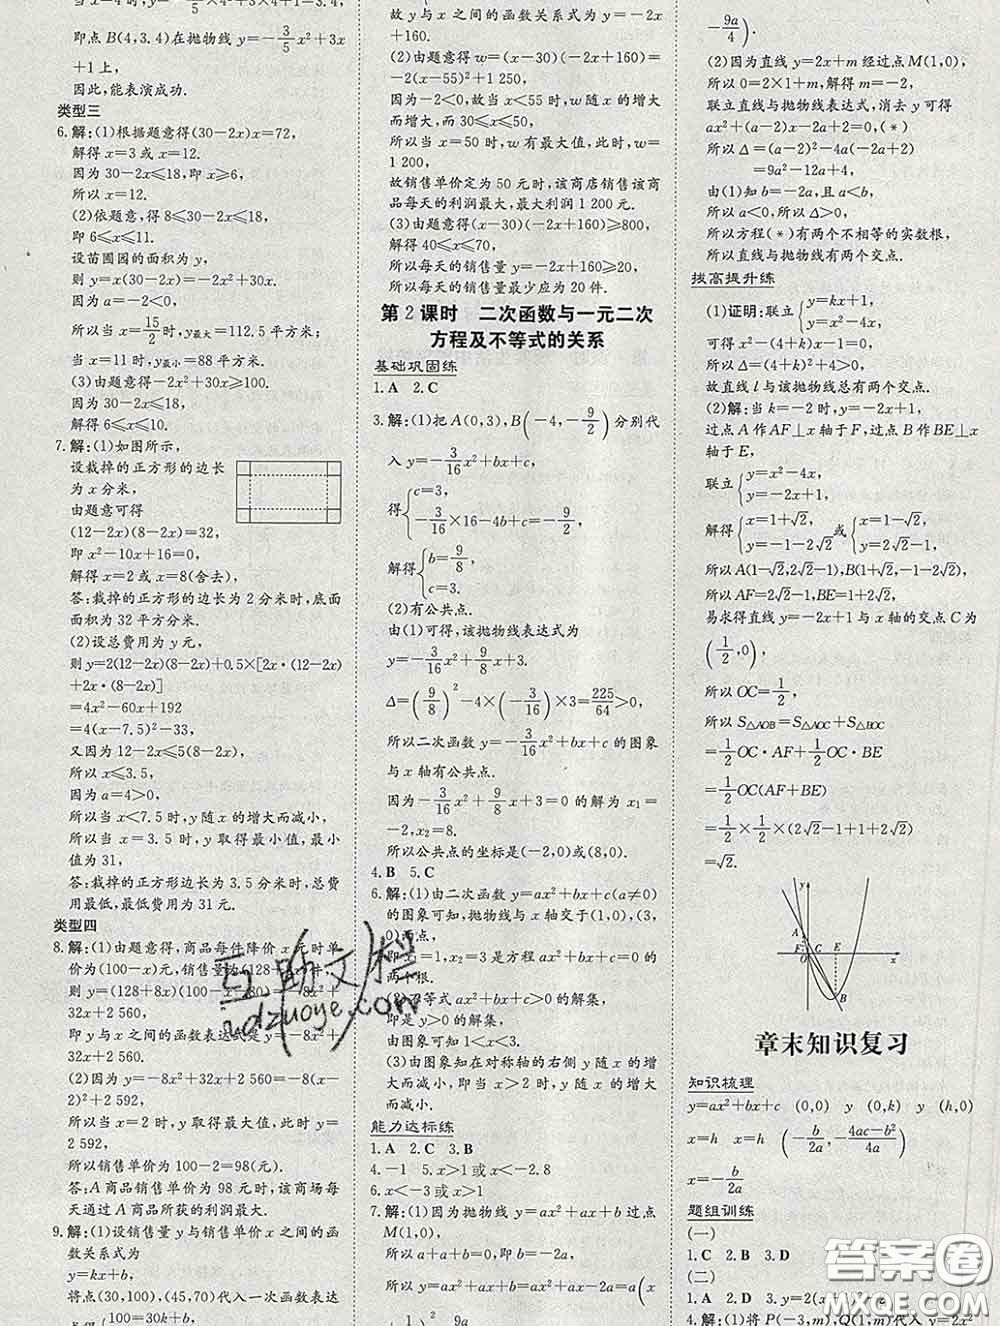 当 x=4 时,y=-3/5×4²+3×4+1=3.4,
即点 B(4,3.4)在抛物线 y=-3/5x²+3x
+1上,
因此,能表演成功.
类型三
6.解:(1)根据题意得(30-2x)x=72,
解得 x=3 或 x=12.
因为 30-2x≤18,即 x≥6,
所以 x=12.
(2)依题意,得 8≤30-2x≤18,
即 6≤x≤11.
设苗圃园的面积为 y,
则 y=x(30-2x)=-2x²+30x.
因为 a=-2<0,
所以当 x=15/2时,y最大=112.5 平方米;
当 x=11 时,y最小=88 平方米.
(3)由题意得-2x²+30x≥100.
因为 30-2x≤18,
解得 6≤x≤10.
7.解:(1)如图所示,
设裁掉的正方形的边长
为 x 分米,
由题意可得
(12-2x)(8-2x)=32,
即 x²-10x+16=0,
解得 x=2 或 x=8(舍去),
答:裁掉的正方形的边长为 2 分米时,底面
面积为 32 平方分米.
(2)设总费用为 y 元,
则 y=2(12-2x)(8-2x)+0.5×[2x·(12-2x)
+2x·(8-2x)]
=4x²-60x+192
=4(x-7.5)²-33,
又因为 12-2x≤5(8-2x),
所以 x≤3.5,
因为 a=4>0,
所以当 x<7.5 时,y 随 x 的增大而减小,
所以当 x=3.5 时,y 取得最小值,最小
值为 31,
答:裁掉的正方形边长为 3.5 分米时,总费
用最低,最低费用为 31 元.
类型四
8.解:(1)由题意得,商品每件降价 x 元时单
价为(100-x)元,销售量为(128+8x)件,
则 y=(128+8x)(100-x-80)=-8x²+
32x+2 560,
即 y 与 x 之间的函数表达式是 y=-8x²+
32x+2 560.
(2)因为 y=-8x²+32x+2 560=-8(x-
2)²+2 592,
所以当 x=2 时,y 取得最大值,此时 y=
2 592,
所以销售单价为 100-2=98(元).
答:A 商品销售单价为 98 元时,该商场每
天通过 A 商品所获的利润最大.
9.解:(1)设销售量 y 与销售单价 x 之间的函
数关系式为
y=kx+b,
将点(30,100),(45,70)代入一次函数表达
100=30k+b,
故 y 与 x 之间的函数关系式为 y=-2x
+160.
(2)由题意得 w=(x-30)(-2x+160)=
-2(x-55)²+1 250,
因为-2<0,故当 x<55 时,w 随 x 的增大
而增大,而 30≤x≤50,
所以当 x=50 时,w 有最大值,此时,w=
1 200,
故销售单价定为 50 元时,该商店销售该商
品每天的利润最大,最大利润 1 200 元.
(3)由题意得(x-30)(-2x+160)≥800,
解得 40≤x≤70,
所以每天的销售量 y=-2x+160≥20,
所以每天的销售量最少应为 20 件.
第 2 课时 二次函数与一元二次
方程及不等式的关系
基础巩固练
1.A 2.C
3.解:(1)把 A(0,3),B(-4,-9/2)分别代
入 y=-3/16x²+bx+c,
得{c=3, -3/16×16-4b+c=-9/2,
解得{b=9/8, c=3.
(2)有公共点.
由(1)可得,该抛物线表达式为
y=-3/16x²+9/8x+3.
Δ=(9/8)²-4×(-3/16)×3=225/64>0,
所以二次函数 y=-3/16x²+bx+c 的图象
与 x 轴有公共点.
因为-3/16x²+9/8x+3=0 的解为 x₁=
-2,x₂=8.
所以公共点的坐标是(-2,0)或(8,0).
4.B 5.C
6.解:(1)由二次函数 y=ax²+bx+c(a≠0)
的图象可知,抛物线与 x 轴交于(1,0),(3,
0)两点,
即 x₁=1,x₂=3 是方程 ax²+bx+c=0 的
两个根.
(2)不等式 ax²+bx+c>0 的解集,
即是 y>0 的解集,
由图象可知 1<x<3.
(3)由图象知在对称轴的右侧 y 随 x 的增
大而减小,即当 x>2 时,y 随 x 的增大
而减小.
能力达标练
1.A 2.C 3.B
4.-1 5.x>1 或 x<-2.8
6.x<-3 或 x>1
7.解:(1)因为抛物线 y=ax²+ax+b 过点
M(1,0),
所以 a+a+b=0,即 b=-2a,
所以 y=ax²+ax+b=ax²+ax-2a=a(x
-9a/4).
(2)因为直线 y=2x+m 经过点 M(1,0),
所以 0=2×1+m,解得 m=-2,
联立直线与抛物线表达式,消去 y 可得
ax²+(a-2)x-2a+2=0,(*)
所以 Δ=(a-2)²-4a(-2a+2)
=9a²-12a+4,
由(1)知 b=-2a,且 a<b,
所以 a<0,所以 Δ>0,
所以方程(*)有两个不相等的实数根,
所以直线与抛物线有两个交点.
拔高提升练
(1)证明:联立{y=kx+1, y=x²-4x,
可得 x²-(4+k)x-1=0,
所以 Δ=(4+k)²+4>0,
故直线 l 与该抛物线总有两个交点.
(2)解:当 k=-2 时,y=-2x+1,
过点 A 作 AF⊥x 轴于 F,过点 B 作 BE⊥x
轴于 E,
联立{y=x²-4x, y=-2x+1,
解得{x=1+√2, y=-1-2√2或{x=1-√2, y=2√2-1,
所以 A(1-√2,2√2-1),B(1+√2,-1-2√2),
所以 AF=2√2-1,BE=1+2√2,
易求得直线 y=-2x+1 与 x 轴的交点 C 为
(1/2,0),
所以 OC=1/2,
所以 S△AOB=S△AOC+S△BOC
=1/2OC·AF+1/2OC·BE
=1/2OC(AF+BE)
=1/2×1/2×(2√2-1+1+2√2)
=√2.
y
A
F
C
O
E
x
B
章末知识复习
知识梳理
y=ax²+bx+c (0,0) y (0,k) y (h,0)
x=h x=h (-b/2a,4ac-b²/4a)
x=-b/2a
题组训练
(一)
1.C 2.B 3.D
(二)
1.D 2.A 3.B
4.解:(1)将 P(-3,m),Q(1,m)代入 y=2x²
互助文档
hdzuoye.com
答案圈
MXQE.COM